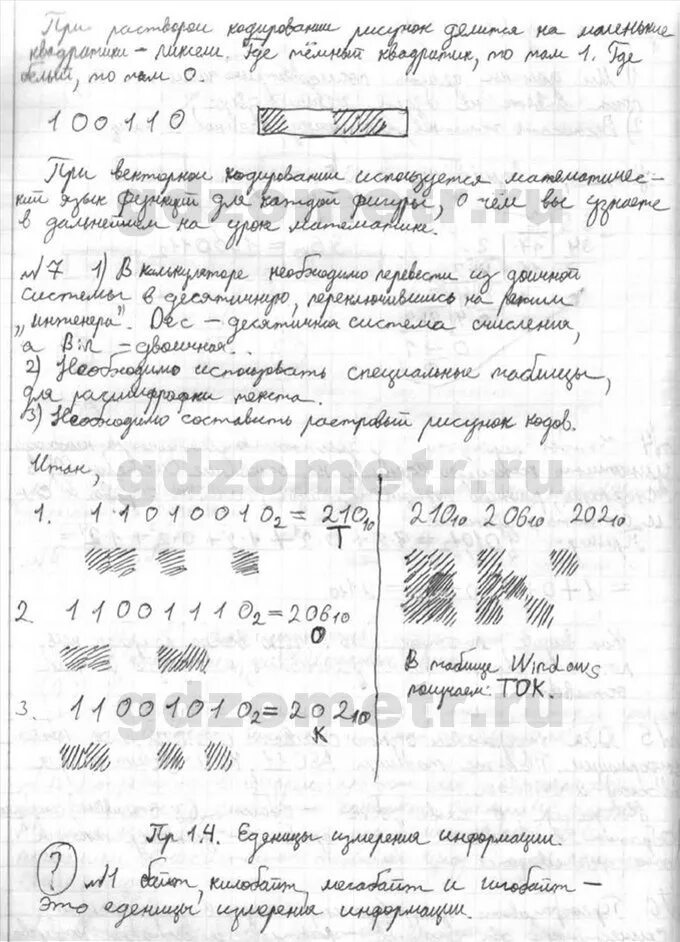 При растровом кодировании рисунок делится на маленькие
квадратики – пиксели. Где тёмный квадратик, то там 1. Где
белый, то там 0.
1 0 0 1 1 0
При векторном кодировании используется математичес-
кий язык функций для каждой фигуры, о чём вы узнаете
в дальнейшем на уроке математике.
gdzometr.ru
№7 1) В калькуляторе необходимо перевести из двоичной
системы в десятичную, переключившись на режим
„инженера". Dec – десятична система счисления,
а Bin – двоичная.
2) Необходимо использовать специальные таблицы,
для расшифровки текста.
3) Необходимо составить растровый рисунок кодов.
gdzometr.ru
Итак,
1. 1 1 0 1 0 0 1 0₂ = 210₁₀
Т
2. 1 1 0 0 1 1 1 0₂ = 206₁₀
О
3. 1 1 0 0 1 0 1 0₂ = 202₁₀
К
210₁₀ 206₁₀ 202₁₀
В таблице Windows
получаем: ТОК.
gdzometr.ru
Пр 1.4. Еденицы измерения информации.
? №1 байт, килобайт, мегабайт и гигобайт –
Это еденицы измерения информации.